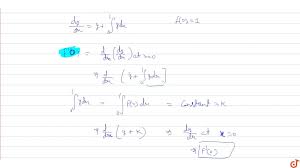 dy/dx = y + ∫₀¹ y dx f(0) = 1
f''(0) = d/dx (dy/dx) at x=0
⇒ d/dx [y + ∫₀¹ y dx]
∫₀¹ y dx = ∫₀¹ f(x) dx = constant = K
⇒ d/dx (y + K) ⇒ dy/dx at x=0
⇒ f'(0)